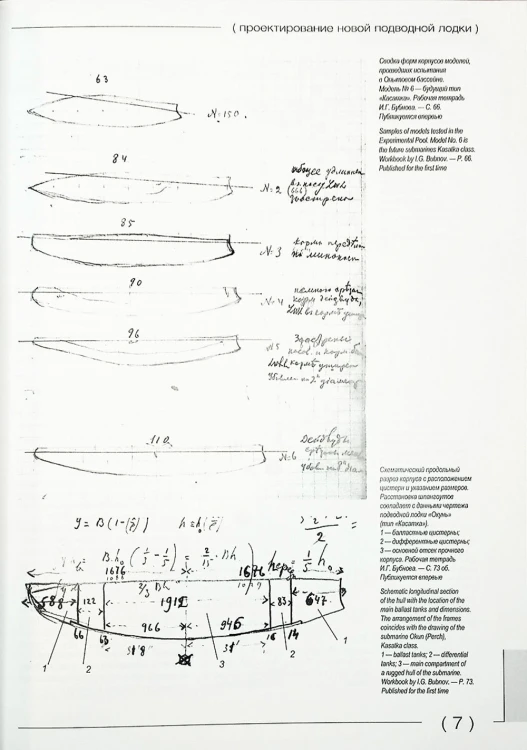 ( проектирование новой подводной лодки )
Сводка форм корпусов моделей,
прошедших испытания
в Опытовом бассейне.
Модель № 6 — будущий тип
«Касатка». Рабочая тетрадь
И.Г. Бубнова. — С. 66.
Публикуется впервые
Samples of models tested in the
Experimental Pool. Model No. 6 is
the future submarines Kasatka class.
Workbook by I.G. Bubnov. — P. 66.
Published for the first time
63
N=150.
84
общее удлинен
N=2
85
N=3
корма
90
N=4
немного
96
N5
110
N=6
Дейдвуды
Схематический продольный
разрез корпуса с расположением
цистерн и указанием размеров.
Расстановка шпангоутов
совпадает с данными чертежа
подводной лодки «Окунь»
(тип «Касатка»).
1 — балластные цистерны;
2 — дифферентные цистерны;
3 — основной отсек прочного
корпуса. Рабочая тетрадь
И.Г. Бубнова. — С. 73 об.
Публикуется впервые
Schematic longitudinal section
of the hull with the location of the
main ballast tanks and dimensions.
The arrangement of the frames
coincides with the drawing of the
submarine Okun (Perch),
Kasatka class.
1 — ballast tanks; 2 — differential
tanks; 3 — main compartment of
a rugged hull of the submarine.
Workbook by I.G. Bubnov. — P. 73.
Published for the first time
2
1676
1676
588
122
2/3 Bh
1912
83
647
966
946
66
63
16
14
1
2
3
2
1
( 7 )